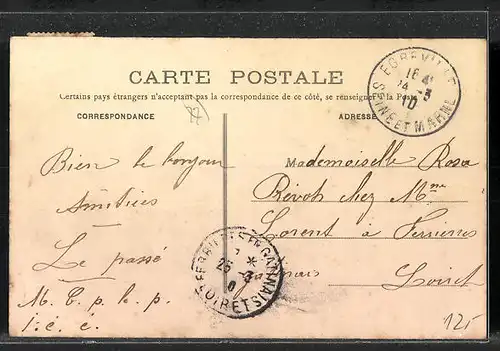 CARTE POSTALE
Certains pays étrangers n'acceptant pas la correspondance de ce côté, se renseigner à la Poste
CORRESPONDANCE
ADRESSE
EGREVILLE
16
24 -3
10
SEINE ET MARNE
Bien le bonjour
Amitiées
Le passé
M. E. p. l. p.
i. c. c.
Mademoiselle Rosa
Prévots chez Mme
Lorent à Ferrières
Gatinais
Loiret
FERRIERES EN GATINAIS
25 -3
LOIRET
125